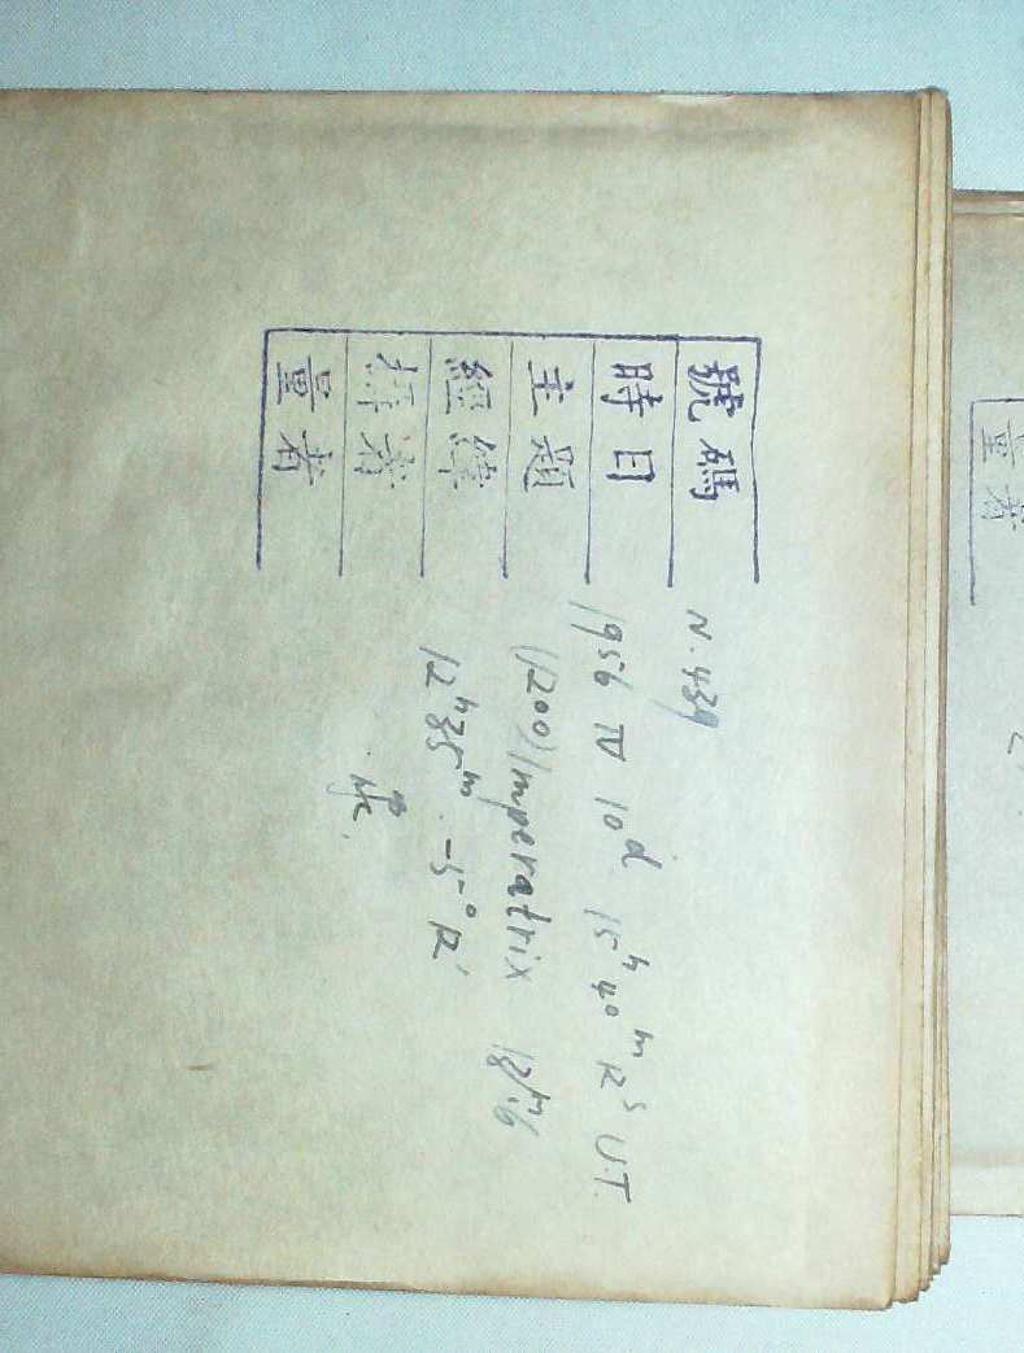 號碼 N. 439
時日 1956 IV 10d 15h 40m 12s U.T.
主題 (1200) Imperatrix 12m.6
經緯 12h35m. -5° 12'
擇者
量者
量者